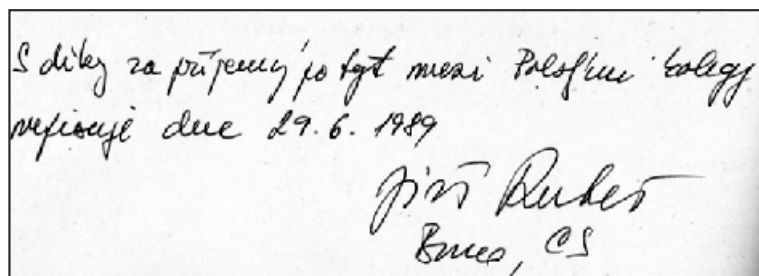 S díky za příjemný pobyt mezi Polskými kolegy
dne 29. 6. 1989
Jiří Rubeš
Brno, CS